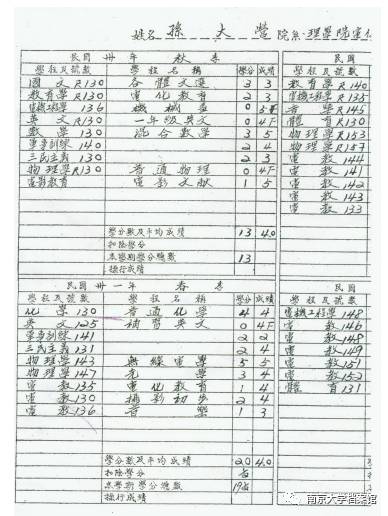 姓名 孫 大 營 院系 理學院
民國 卅 年 秋 季 民國
學程及號數 學程名稱 學分 成績 學程及號數
國文 R130 各體文選 3 3 教育學 R140
教育學 R130 電化教育 2 3 電機工程學 R135
電機工程 136 0 音樂 R145
英文 R130 一年級英文 0 4F 體育 R130
數學 130 混合數學 3 5 物理學 R153
軍事訓練 140 2 4 物理學 R157
三民主義 130 2 3 電教 144
物理學 R130 普通物理 0 4F 電教 141
電影教育 電影文獻 1 5 電教 142
電教 143
電教 133
學分數及平均成績 13 4.0
扣除學分
本學期學分總數 13
操行成績
民國 卅一 年 春 季 民國
學程及號數 學程名稱 學分 成績 學程及號數
化學 130 普通化學 4 4 電機工程學 148
英文 125 補習英文 0 4F 電教 146
軍事訓練 141 2 2 電教 148
三民主義 131 2 4 電教 149
物理學 143 無線電學 5 5 電教 151
物理學 147 光學 3 4 電教 152
電教 135 電化教育 1 4 體育 131
電教 130 攝影初步 2 4
電教 136 音樂 1 3
學分數及平均成績 20 4.0
扣除學分
本學期學分總數
操行成績
南京大学档案馆